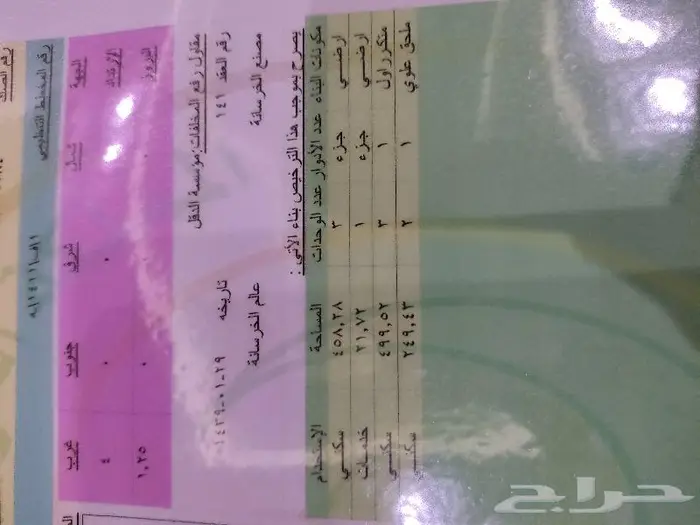 رقم الصك
رقم المخطط التنظيمي
الجهة شمال شرق جنوب غرب
الإرتداد ٤
البروز ١,٢٥
مقاول رفع المخلفات: مؤسسة النقل
رقم العقد ١٤١ تاريخه ٢٩-٠١-١٤٣٩
مصنع الخرسانة عالم الخرسانة
يصرح بموجب هذا الترخيص بناء الآتي :
مكونات البناء عدد الأدوار عدد الوحدات المساحة الإستخدام
ارضي جزء ٣ ٤٥٨,٢٨ سكني
ارضي جزء ١ ٢١,٧٢ خدمات
متكرر اول ١ ٣ ٤٩٩,٥٢ سكني
ملحق علوي ١ ٢ ٢٤٩,٤٣ سكني
حراج